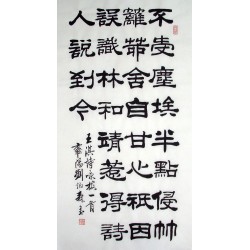 不受塵埃半點侵竹
籬茆舍自甘心祇因
誤識林和靖惹得詩
人說到今
王淇詩詠梅一首
陽劉